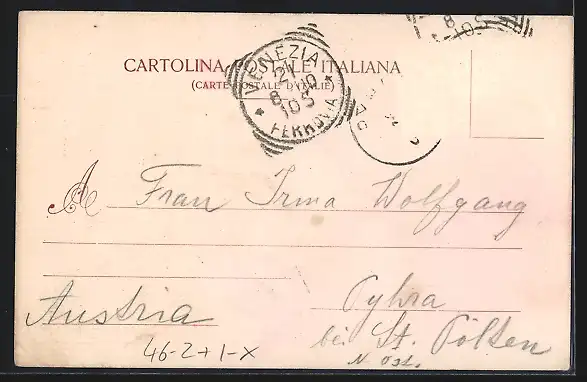 CARTOLINA POSTALE ITALIANA
(CARTE POSTALE D'ITALIE)
VENEZIA
FERROVIA
8
105
A
Frau Irma Wolfgang
Pyhra
Austria
bei St. Pölten
N. Öst.
46-2+1-X